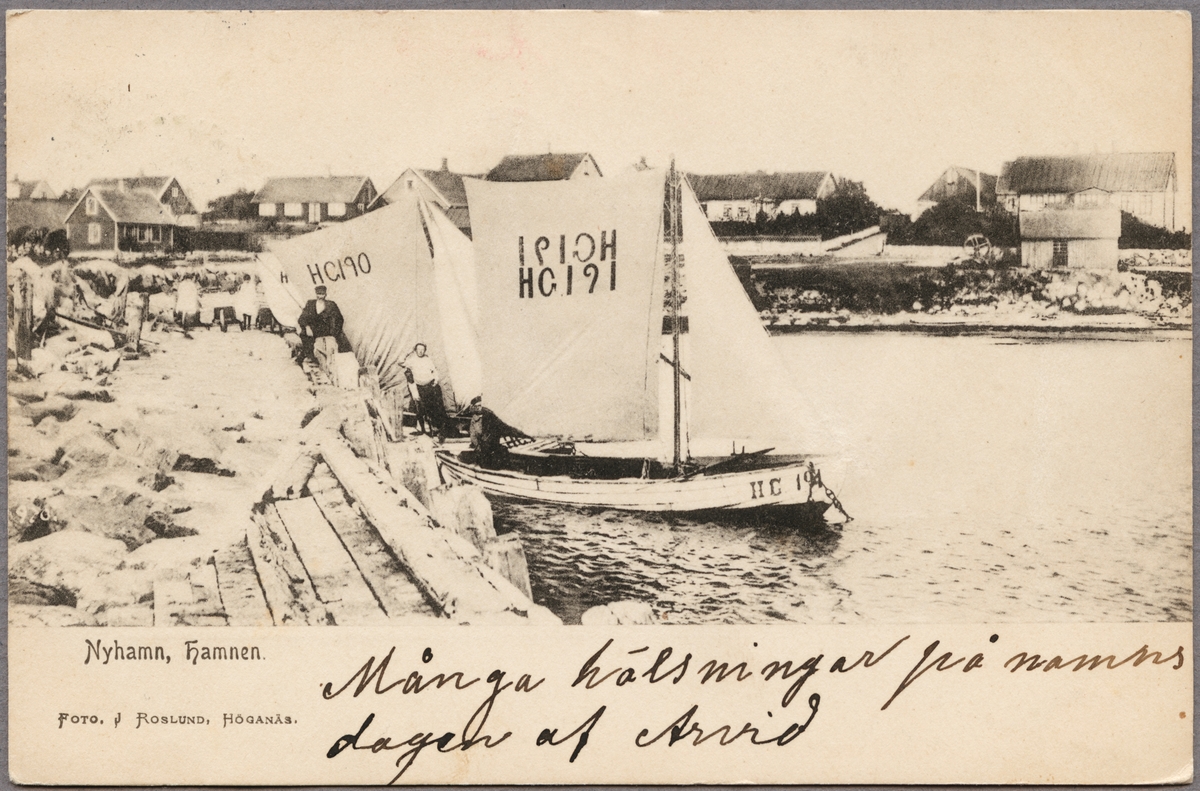 H HG.190
HG.191
HG.191
HG 191
Nyhamn, Hamnen.
FOTO. J ROSLUND, HÖGANÄS.
Många hälsningar på namns
dagen af Arvid